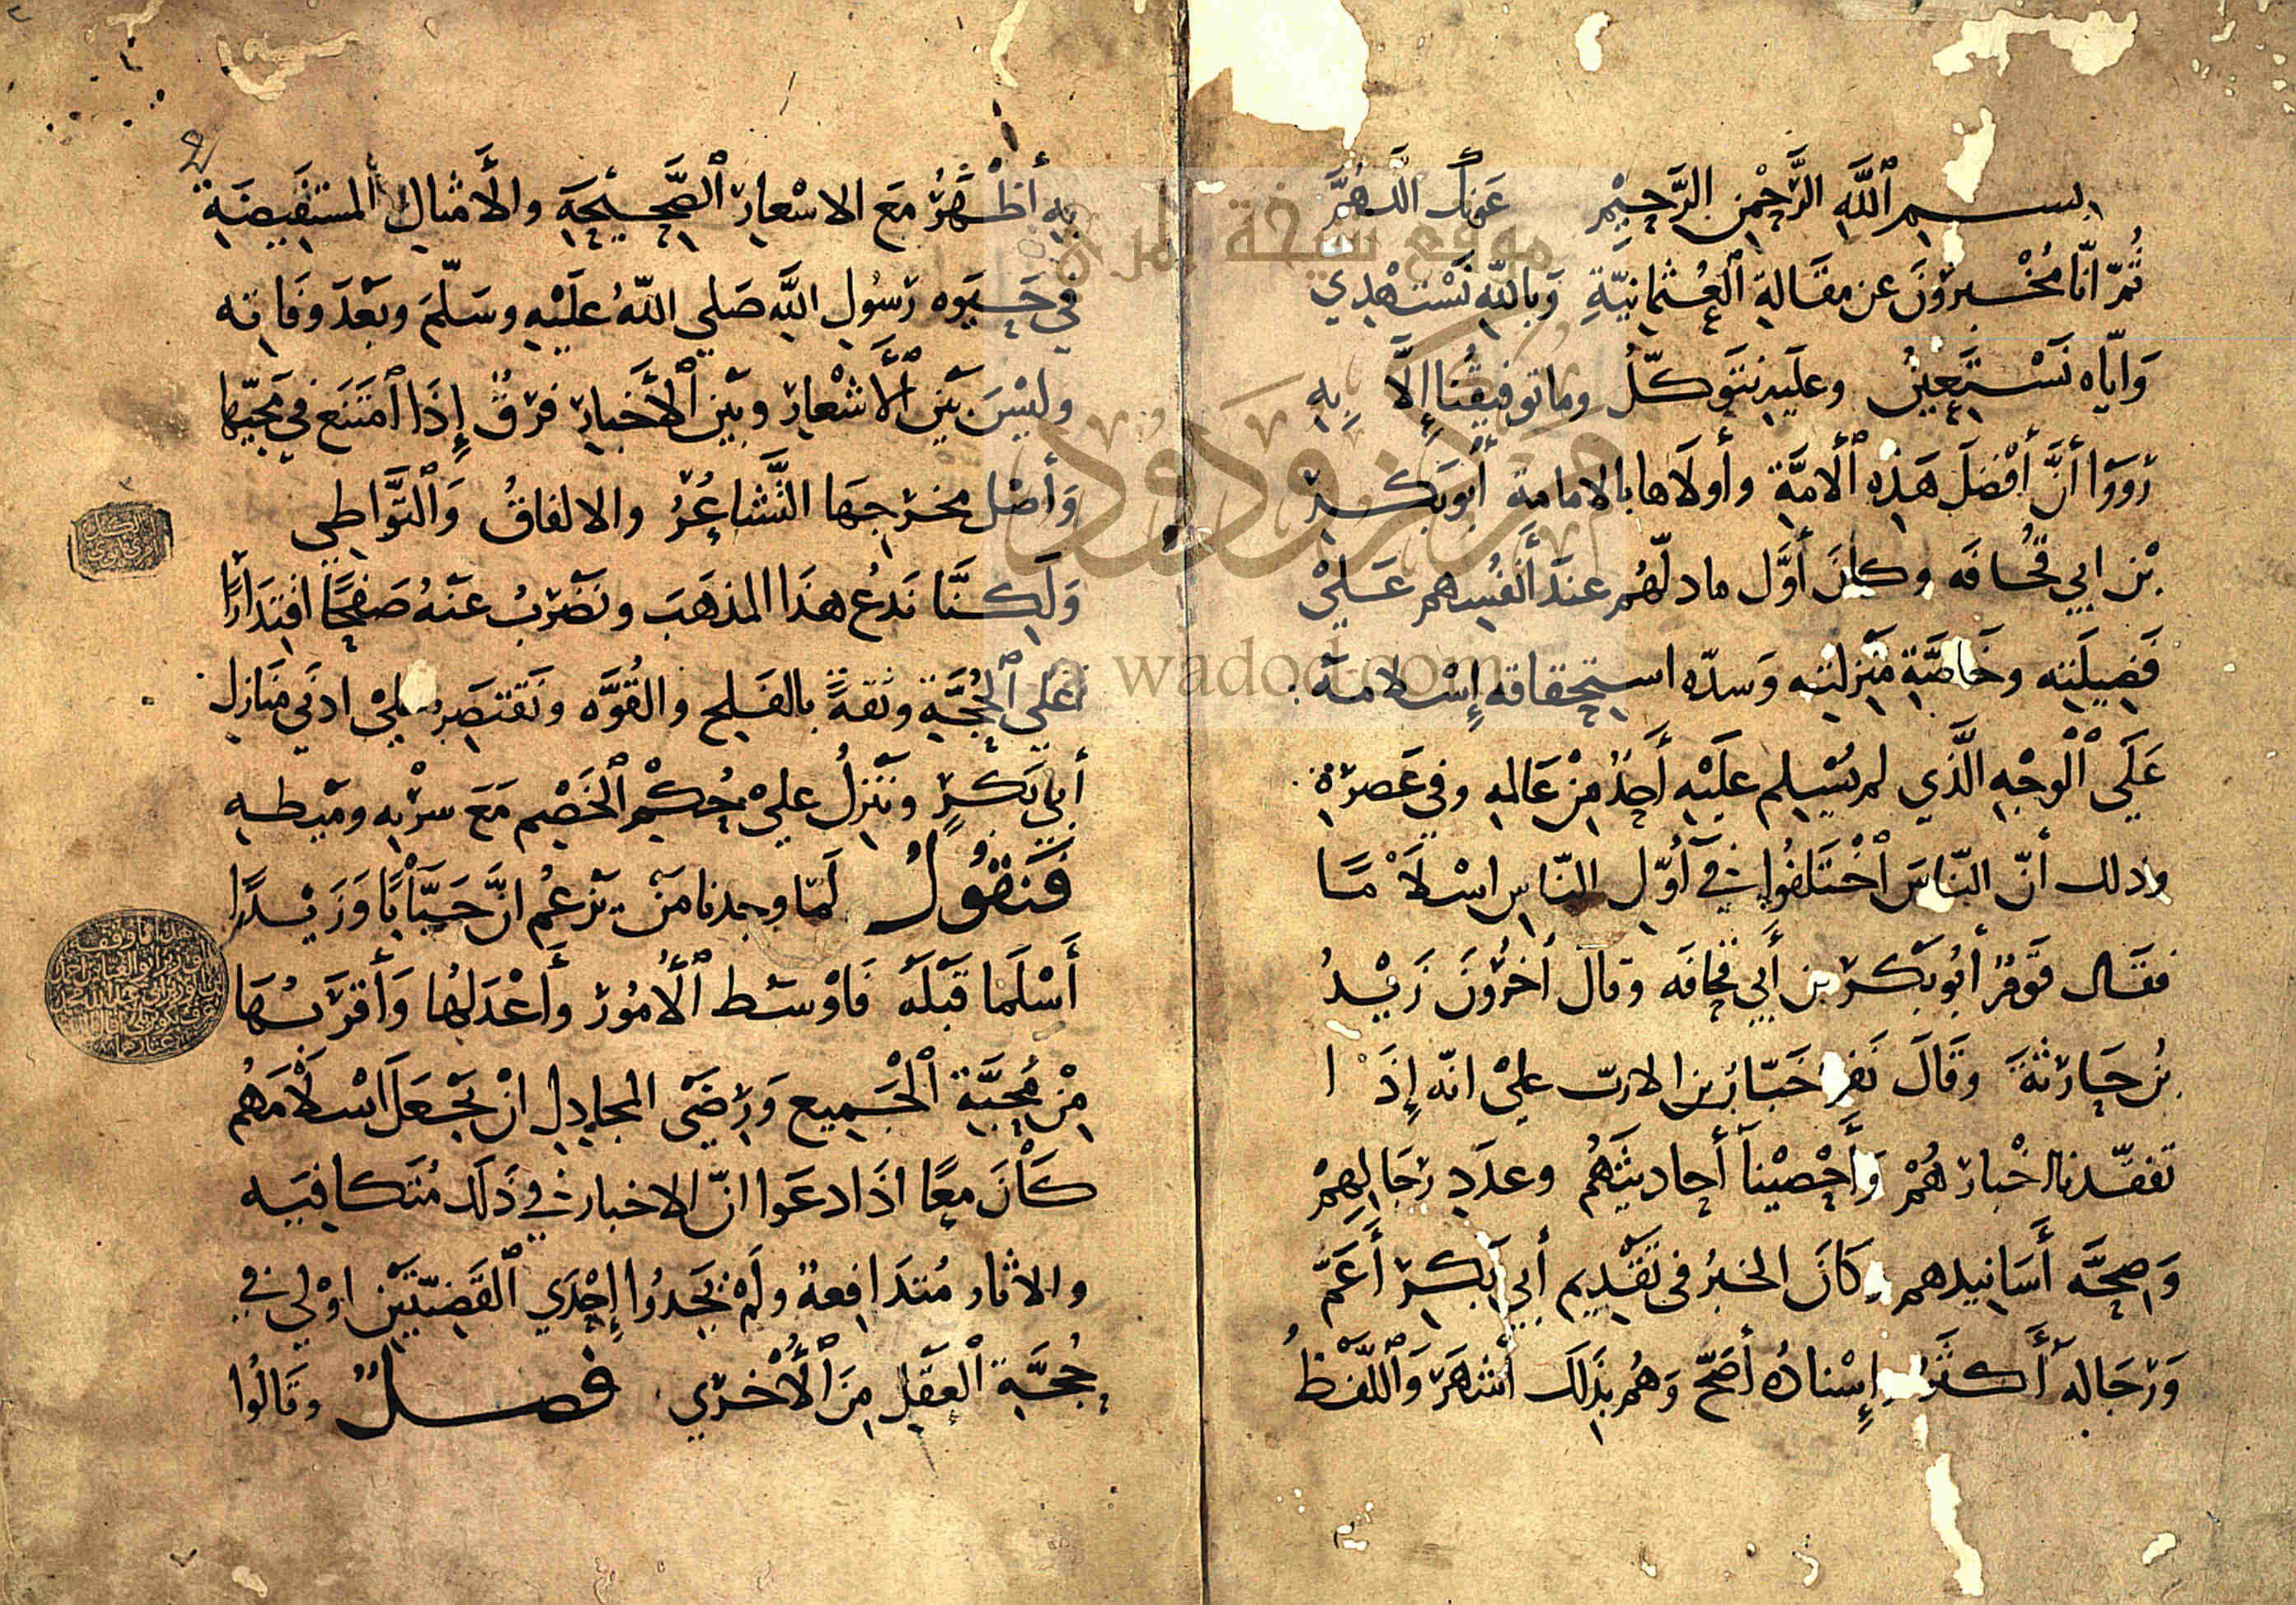 بسم ٱللَّهِ الرَّحْمٰنِ الرَّحِيْمِ عَونك اللَّهُمَّ
ثُمّ انّا مُخْبِروْنَ عن مقَالةِ ٱلعُثمانِيَّةِ وَباللّهِ نَسْتَهْدِي
وَايّاه نَسْتَعِينُ وعلَيهِ نتَوكّلُ وما توفيقُنا إلَّا بِهِ
زووَا أنَّ أفْضَلَ هَذِهِ ٱلامَّةِ وأولَاها بالامامةِ أبُو بَكرٍ
بْن ابي قُحافَه وكانَ أوَّل ما دلّهُم عندَ أنْفُسِهم عَلَيْ
فَضِيلَتِه وخَاصَّةِ مَنزلتِه وَسدّه استِحقاقه إِسْلامهُ
عَلَي ٱلْوجْهِ الَّذي لم يُسْلِم علَيْهِ أَحدٌ مِنْ عَالمِهِ وفي عَصرِهِ
وذلك أنّ النّاسَ ٱخْتَلفُوا في أوّلِ النّاسِ اسْلَامًا
فقَال قَوْمٌ أبُو بَكر بن أَبي قحافَه وقالَ أخَرُونَ زَيْدُ
بْن حَارثَةَ وقَالَ نَفر خَبّابُ بن الارتّ عليْ انّه إِذَا
تفقّدنا اخْبارهُمْ وَأَحْصَيْنا أحاديثَهُم وعدَدِ رجَالِهِمْ
وَصِحَّه أَسَانِيدهم كَانَ الخبرُ في تَقْدِيمِ أبي بَكرٍ أَعَمَّ
وَرجَاله أَكثَرُ وإِسْنادُه أصَحّ وَهُم بذَلِكَ أشهَر وَٱللَّفظُ
بِهِ أظْهَرُ مَعَ الاشْعارِ ٱلصَّحِيحَةِ والأَمثالِ المستفِيضَةِ
في حَيَوه رَسُولِ اللَّه صَلي اللّهُ علَيْهِ وسَلّمَ وبَعْدَ وفَاتِه
وليْسَ بَيْن ٱلأشْعارِ وبيْن ٱلأَخبارِ فرْقٌ إِذَا ٱمتَنَع في مَجيّها
وَأصْل مخرجِهَا التَّشاعُرُ والاتفاقُ وَٱلتَّوَاطِي
وَلَكِنَّا نَدَعُ هذَا المذهَبَ ونَضْرِبُ عنْهُ صَفحًا اقتِدَارًا
عَلي ٱلحُجَّةِ وثقةً بالفَلج والقُوَّه ونَقتصِر عليْ ادنَي منَازل
أَبي بَكرٍ ونَنزِلُ عليْ حُكْمِ ٱلخَصْمِ مَعَ سرْبهِ وميطهِ
فَنَقُولُ لَمّا وجدنا مَنْ يَزعُم انَّ خَبّابًا وَزَيْدًا
أَسْلَما قَبْلَه فَاوْسَط ٱلأُمُورِ وأَعْدَلُها وَأَقرَبُهَا
مِنْ مُحبَّةِ ٱلْجَميع وَرِضَي المجادِلِ انْ يَجْعَل اسْلَامَهُم
كَانَ معًا اذَا ادعَوا انّ الاخبار في ذَلكَ مُتَكافيَه
والاثار مُتدَافِعة ولَمْ يَجدُوا إحْدَي ٱلقَضيّتَيْن اوْلي في
حُجّةِ ٱلعقلِ مِنَ ٱلأُخرَي فصلٌ وقَالُوا
موقع شيخة المرى
مركز ودود
wadod.com